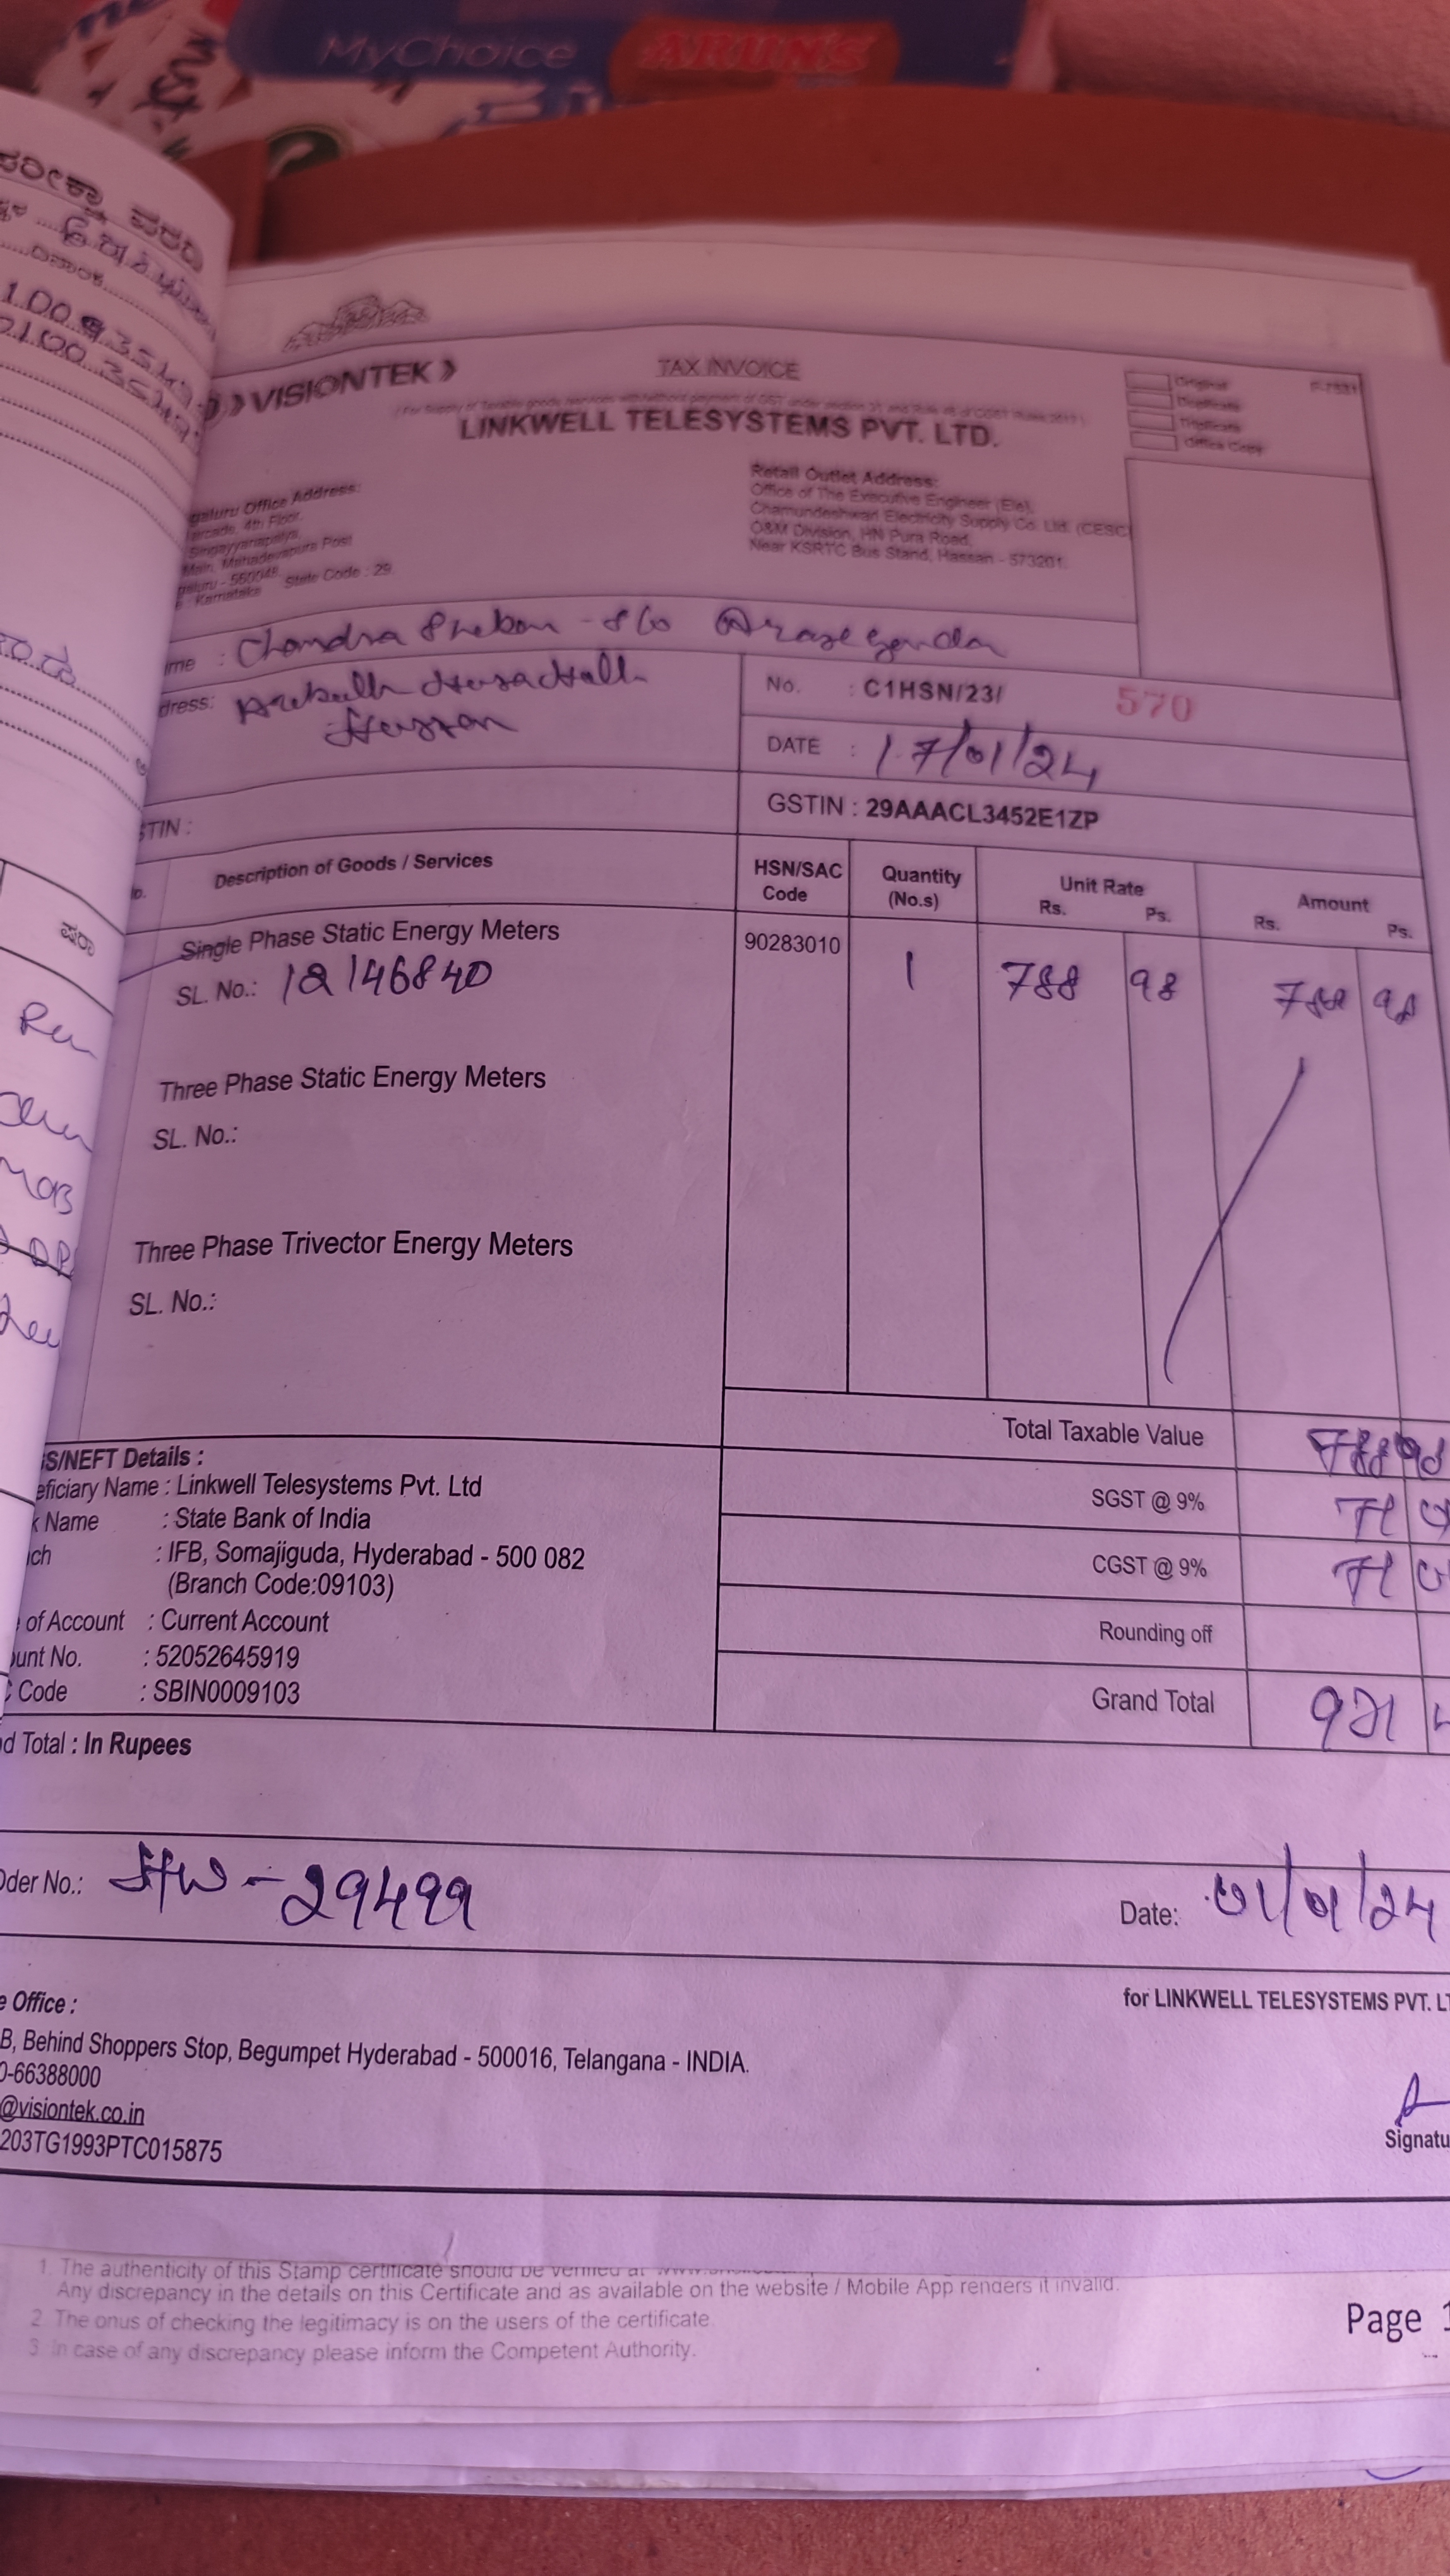 MyChoice ARUN'S
VISIONTEK
TAX INVOICE
LINKWELL TELESYSTEMS PVT. LTD.
Original
Duplicate
Triplicate
Office Copy
galuru Office Address:
arcade, 4th Floor,
Singayyanapalya,
Main, Mahadevapura Post
galuru - 560048
: Karnataka State Code : 29
Retail Outlet Address:
Office of The Executive Engineer (Ele),
Chamundeshwari Electricity Supply Co. Ltd. (CESC)
O&M Division, HN Pura Road,
Near KSRTC Bus Stand, Hassan - 573201.
me : Chandra Shekar - S/o
dress:
Hassan
No. : C1HSN/23/ 570
DATE : 17/01/24
STIN :
GSTIN : 29AAACL3452E1ZP
o. Description of Goods / Services HSN/SAC Code Quantity (No.s) Unit Rate Rs. Ps. Amount Rs. Ps.
Single Phase Static Energy Meters 90283010
SL. No.: 12146840 1 788 98 788 98
Three Phase Static Energy Meters
SL. No.:
Three Phase Trivector Energy Meters
SL. No.:
Total Taxable Value 788 98
SGST @ 9% 71
CGST @ 9% 71
Rounding off
Grand Total 931
S/NEFT Details :
eficiary Name : Linkwell Telesystems Pvt. Ltd
k Name : State Bank of India
ch : IFB, Somajiguda, Hyderabad - 500 082
(Branch Code:09103)
of Account : Current Account
unt No. : 52052645919
Code : SBIN0009103
d Total : In Rupees
Oder No.: HW - 29499
Date: 01/01/24
e Office :
B, Behind Shoppers Stop, Begumpet Hyderabad - 500016, Telangana - INDIA.
0-66388000
@visiontek.co.in
203TG1993PTC015875
for LINKWELL TELESYSTEMS PVT. LT
Signatu
1. The authenticity of this Stamp certificate should be verified at
Any discrepancy in the details on this Certificate and as available on the website / Mobile App renders it invalid.
2. The onus of checking the legitimacy is on the users of the certificate.
3. In case of any discrepancy please inform the Competent Authority.
Page 1